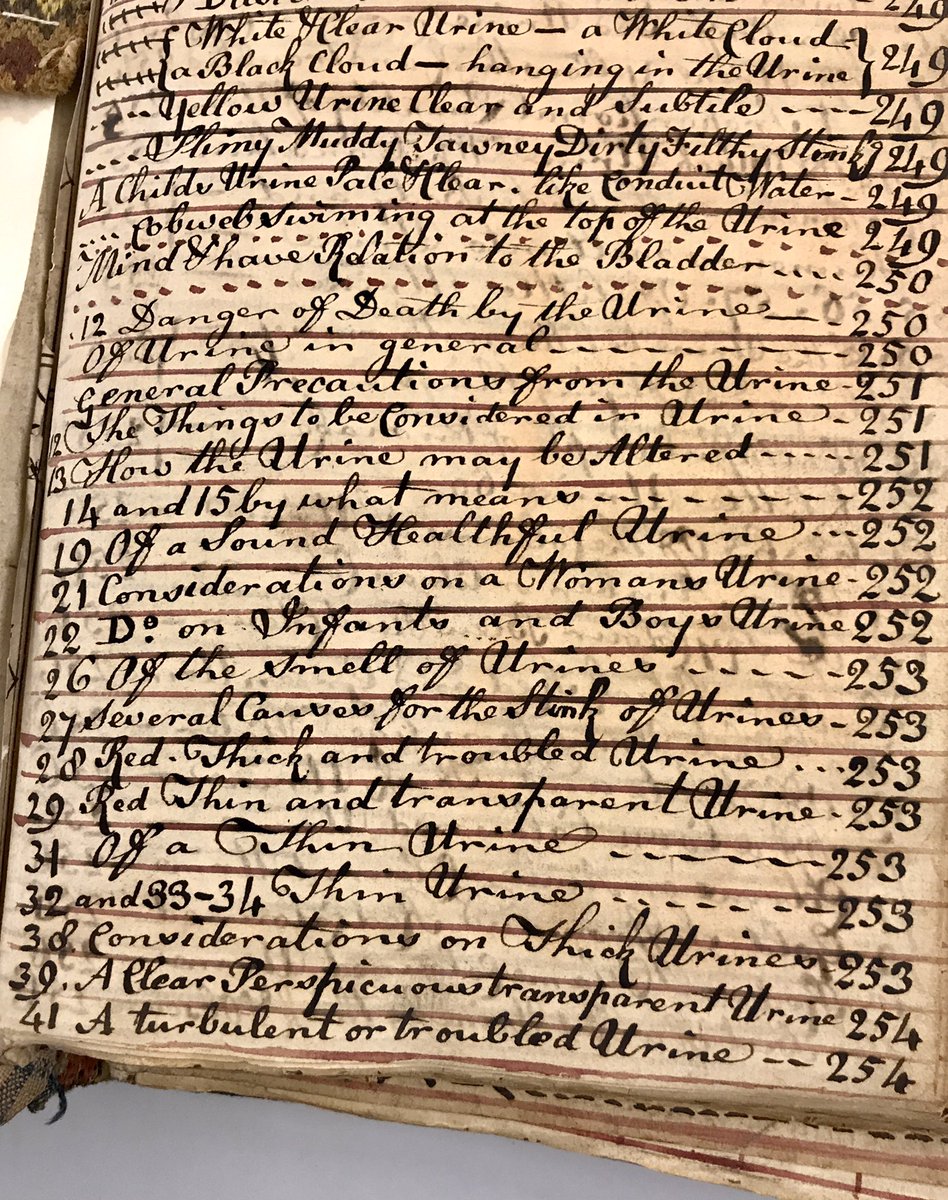 249
White & Clear Urine — a White Cloud
a Black Cloud — hanging in the Urine } 249
... Yellow Urine Clear and Subtile ---- 249
.... Slimy Muddy Tawney Dirty Filthy Stink 249
A Childs Urine Pale & Clear. like Conduit Water - 249
.... Cobweb swiming at the top of the Urine 249
Mind & have Relation to the Bladder .... 250
.12 Danger of Death by the Urine --- 250
Of Urine in general --------- 250
General Precautions from the Urine - 251
12 The Things to be Considered in Urine - 251
13 How the Urine may be Altered ----- 251
14 and 15 by what means -------- 252
19 Of a Sound Healthful Urine ... 252
21 Considerations on a Womans Urine - 252
22 Do. on Infants and Boys Urine 252
26 Of the smell of Urines ------ 253
27 several Causes for the Stink of Urines - 253
28 Red. Thick and troubled Urine ... 253
29 Red Thin and transparent Urine - 253
31 Of a Thin Urine ------- 253
32 and 33-34 Thin Urine ------- 253
38. Considerations on Thick Urines - 253
39. A Clear Perspicuous transparent Urine 254
41 A turbulent or troubled Urine --- 254